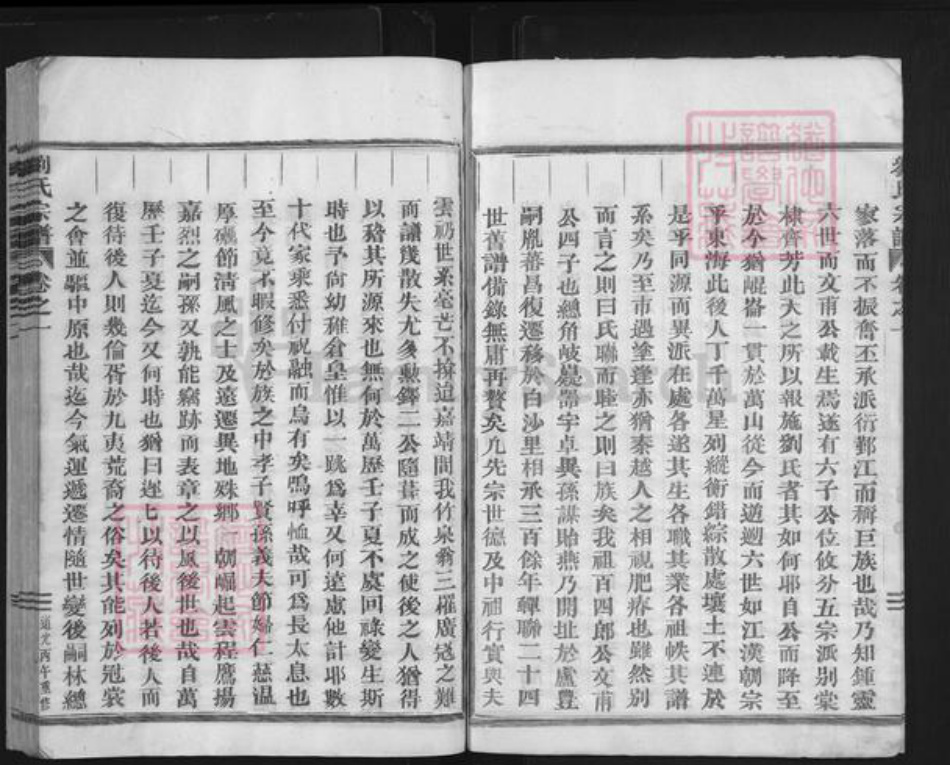 家落而不振奮丕承派衍鄞江而稱巨族也哉乃知鍾靈
六世而文甫公載生焉遂有六子公位攸分五宗派別棠
棣齊芳此天之所以報施劉氏者其如何耶自公而降至
於今猶崐崙一貫於萬山從今而遡廻六世如江漢朝宗
乎東海此後人丁千萬星列縱衡錯綜散處壤土不連於
是乎同源而異派在處各遂其生各職其業各祖帙其譜
系矣乃至市遇塗逢亦猶秦越人之相視肥瘠也雖然別
而言之則曰氏聯而睦之則曰族矣我祖百四郎公文甫
公四子也總角歧嶷器宇卓異孫謀貽燕乃開址於盧豊
嗣胤蕃昌復遷移於白沙里相承三百餘年蟬聯二十四
世舊譜備錄無庸再贅矣凢先宗世德及中祖行實與夫
雲礽世系毫芒不揜迨嘉靖間我竹泉翁三罹廣冦之難
而譜幾散失尤多勳鐸二公隨葺而成之使後之人猶得
以稽其所源來也無何於萬歷壬子夏不虞回祿變生斯
時也予尚幼稚倉皇惟以一跳爲幸又何遠慮他計耶數
十代家乘悉付祝融而烏有矣嗚呼恤哉可爲長太息也
至今竟不暇修矣於族之中孝子賢孫義夫節婦仁慈温
厚礪節清風之士及遠遷異地殊鄉一朝崛起雲程鷹揚
嘉烈之嗣孫又孰能竊跡而表章之以風後世也哉自萬
歷壬子夏迄今又何時也猶曰遲乚以待後人若後人而
復待後人則幾倫胥於九夷荒裔之俗矣其能列於冠裳
之會並驅中原也哉迄今氣運遞遷情隨世變後嗣林總
劉氏宗譜 卷之一
道光丙午重修